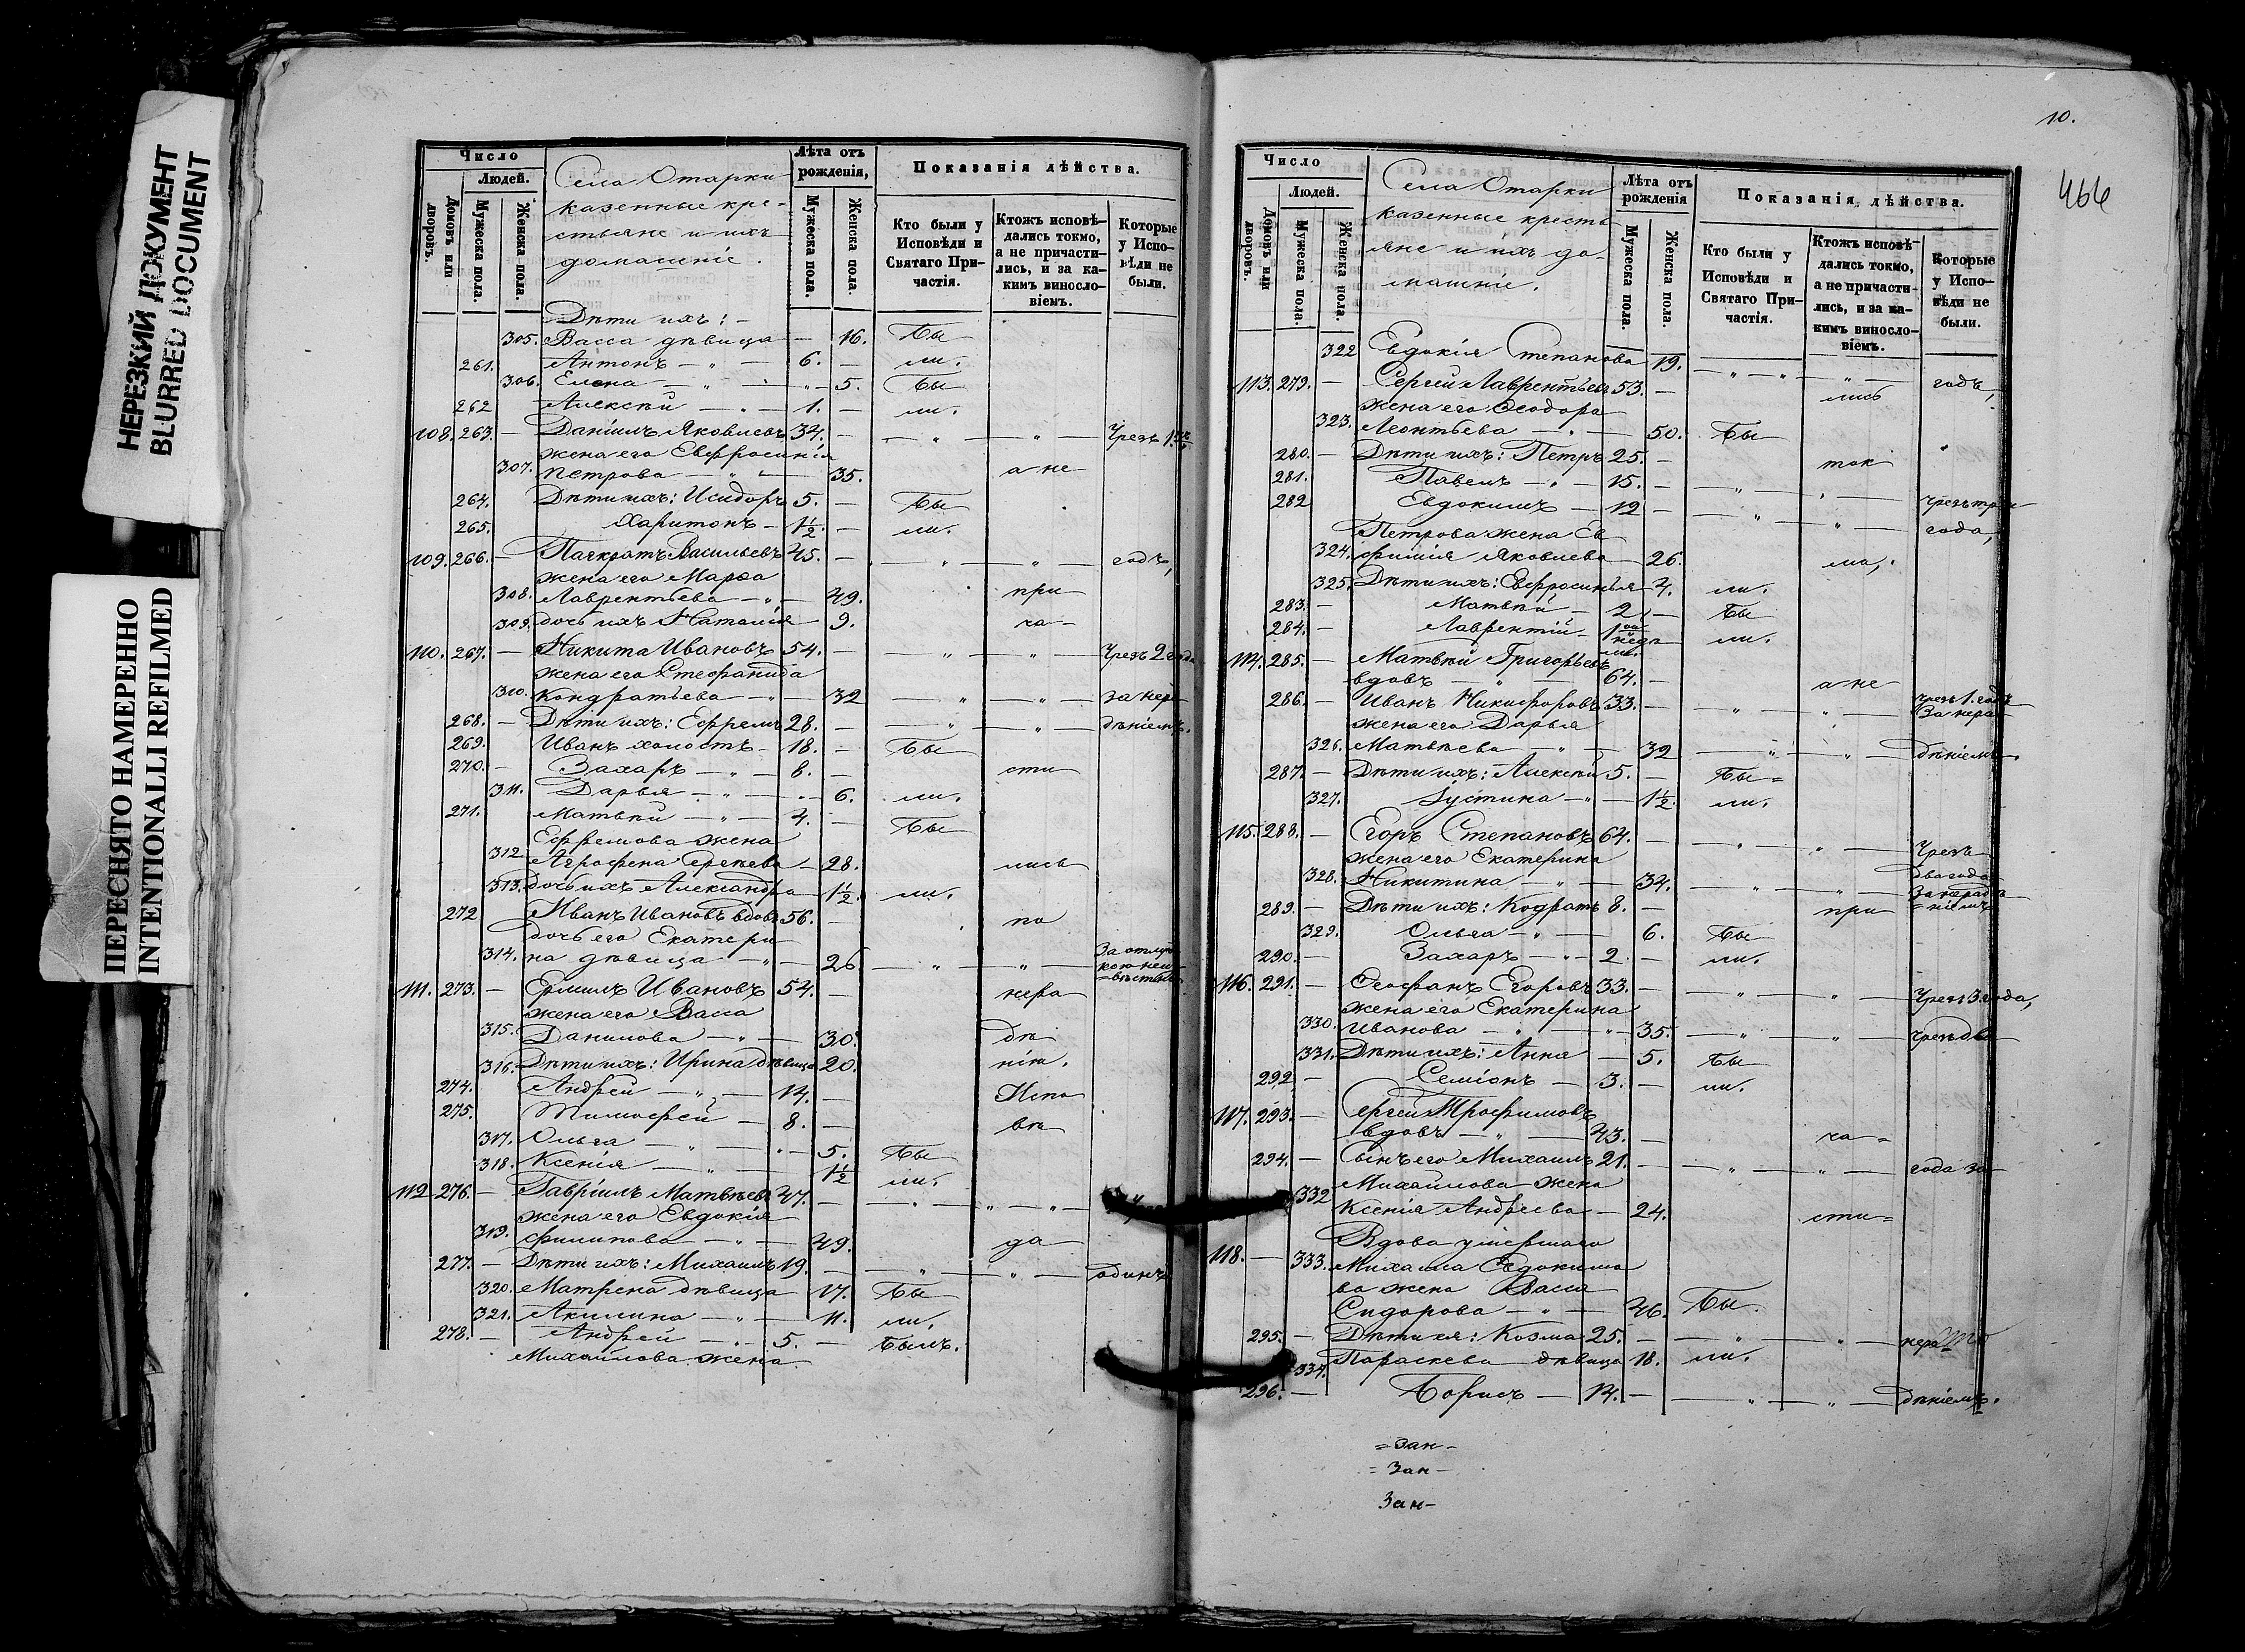 НЕРЕЗКИЙ ДОКУМЕНТ
BLURRED DOCUMENT
ПЕРЕСНЯТО НАМЕРЕННО
INTENTIONALLI REFILMED
Число
Людей.
Домовъ или дворовъ.
Мужеска пола.
Женска пола.
Села Отарки
казенные кре-
стьяне и ихъ
домашніе.
Лѣта отъ рожденія,
Мужеска пола.
Женска пола.
Показанія дѣйства.
Кто были у Исповѣди и Святаго При-частія.
Ктожъ исповѣ-дались токмо, а не причасти-лись, и за ка-кимъ винос​ло-віемъ.
Которые у Испо-вѣди не были.
Дѣти ихъ: -
305. Васса дѣвица - 16. Бы
261. Антонъ - „ - 6. - ли.
306. Елена - „ - „ - 5. Бы
262 Алексѣй - „ - 1. - ли.
108. 263. - Даніилъ Яковлевъ 34. - - „ - „ - Чрезъ 1.
жена его Евфросинія
307. Петрова - „ - 35. а не-
264. Дѣти ихъ: Исидоръ 5. - Бы
265. Харитонъ - 1½. - ли.
109. 266. - Панкратъ Васильевъ 45. - - „ - „ - годъ,
жена его Марѳа
308. Лаврентьева - „ - 49. при
309. дочь ихъ Наталія - 9. ча-
110. 267. - Никита Ивановъ 54. - - „ - „ - Чрезъ 2 года
жена его Стефанида
310. Кондратьева - „ - 32 - „ - „ - за нера
268. - Дѣти ихъ: Ефремъ 28. - - „ - „ - дѣніемъ.
269. Иванъ холостъ - 18. - Бы
270. - Захаръ - „ - 8. - сти
311. Дарья - „ - „ - 6. ли.
271. Матвѣй - „ - 4. - Бы
Ефремова жена
312 Агрофена Сергѣева - 28. лись
313. дочь ихъ Александра - 1½. ли.
272 Иванъ Ивановъ вдовъ 56. - по
дочь его Екатери
314. на дѣвица - „ - 26 - „ - „ - За отлуч
кою неиз
=вѣстно
111. 273. - Ермилъ Ивановъ 54. - нера
жена его Васса
315. Данилова - „ - 30. дѣ
316. Дѣти ихъ: Ирина дѣвица 20. нію.
274. Андрей - „ - 14. - Испо
275. Тимоѳей - 8. - вѣ
317. Ольга - „ - „ - 5. Бы
318. Ксенія - „ - 1½ ли.
112 276. - Гавріилъ Матвѣевъ 47. - - „ - „ - „ -
жена его Евдокія
319. Филипова - „ - 49. да
277. - Дѣти ихъ: Михаилъ 19. - - „ - „ - одинъ
320. Матрена дѣвица 17. Бы
321. Акилина - „ - 11. ли.
278. - Андрей - „ - 5. - Былъ.
Михайлова жена
10.
466
Число
Людей.
Домовъ или дворовъ.
Мужеска пола.
Женска пола.
Села Отарки
казенные кресть
яне и ихъ до-
машніе.
Лѣта отъ рожденія
Мужеска пола.
Женска пола.
Показанія дѣйства.
Кто были у Исповѣди и Святаго При-частія.
Ктожъ исповѣ-дались токмо, а не причасти-лись, и за ка-кимъ винос​ло-віемъ.
Которые у Испо-вѣди не были.
322 Евдокія Степанова 19. - „ - „ - „ - годъ,
113. 279. - Сергей Лаврентьевъ 53. - лись
жена его Ѳеодора
323. Леонтьева - „ - 50. Бы
280. - Дѣти ихъ: Петръ 25. - ток
281. Павелъ - „ - 15. - - „ - „ - Чрезъ три
282 Евдокимъ - 12 - - „ - „ - года,
Петрова жена Ев
324. фимія Яковлева - 26. ма,.
325. Дѣти ихъ: Евфросинья 4. ли.
283. - Матвѣй - 2 - Бы
284. - Лаврентій - 1 ли.
114. 285. - Матвѣй Григорьевъ
вдовъ - „ - 64. - а не
286. - Иванъ Никифоровъ 33. - - „ - „ - чрезъ 1. годъ
За нера
жена его Дарья
326. Матвѣева - „ - 32 - „ - „ - дѣніемъ.
287. - Дѣти ихъ: Алексѣй 5. - Бы=
327. Іустина - „ - 1½ ли.
115. 288. - Егоръ Степановъ 64. - - „ - „ - Чрезъ
жена его Екатерина
328. Никитина - „ - 34. - „ - „ - два года
За нерадѣ
=ніемъ
289. - Дѣти ихъ: Кодратъ 8. - при
329. Ольга - „ - 6. Бы
290. - Захаръ - „ - 2. - ли.
116. 291. - Ѳеофанъ Егоровъ 33. - - „ - „ - Чрезъ 3 года,
жена его Екатерина
330. Иванова - „ - „ - 35. - „ - „ - Чрезъ два
331. Дѣти ихъ: Анна - 5. Бы
292 - Семіонъ - 3. - ли.
117. 293. - Сергей Трофимовъ
вдовъ - „ - 43. - ча=
294. - Сынъ его Михаилъ 21. - - „ - „ - года за
Михайлова жена
332 Ксенія Андреева - 24. сти=
118. - 333. Вдова умершаго
Михаила Евдокимо
ва жена Васса
Сидорова - „ - 46. Бы.
295. - Дѣти ея: Козма 25. - - „ - „ - нера
334. Параскева дѣвица 18. ли.
296. - Борисъ - 14. - - „ - „ - дѣніемъ.
=Зан-
=Зан-
Зан-